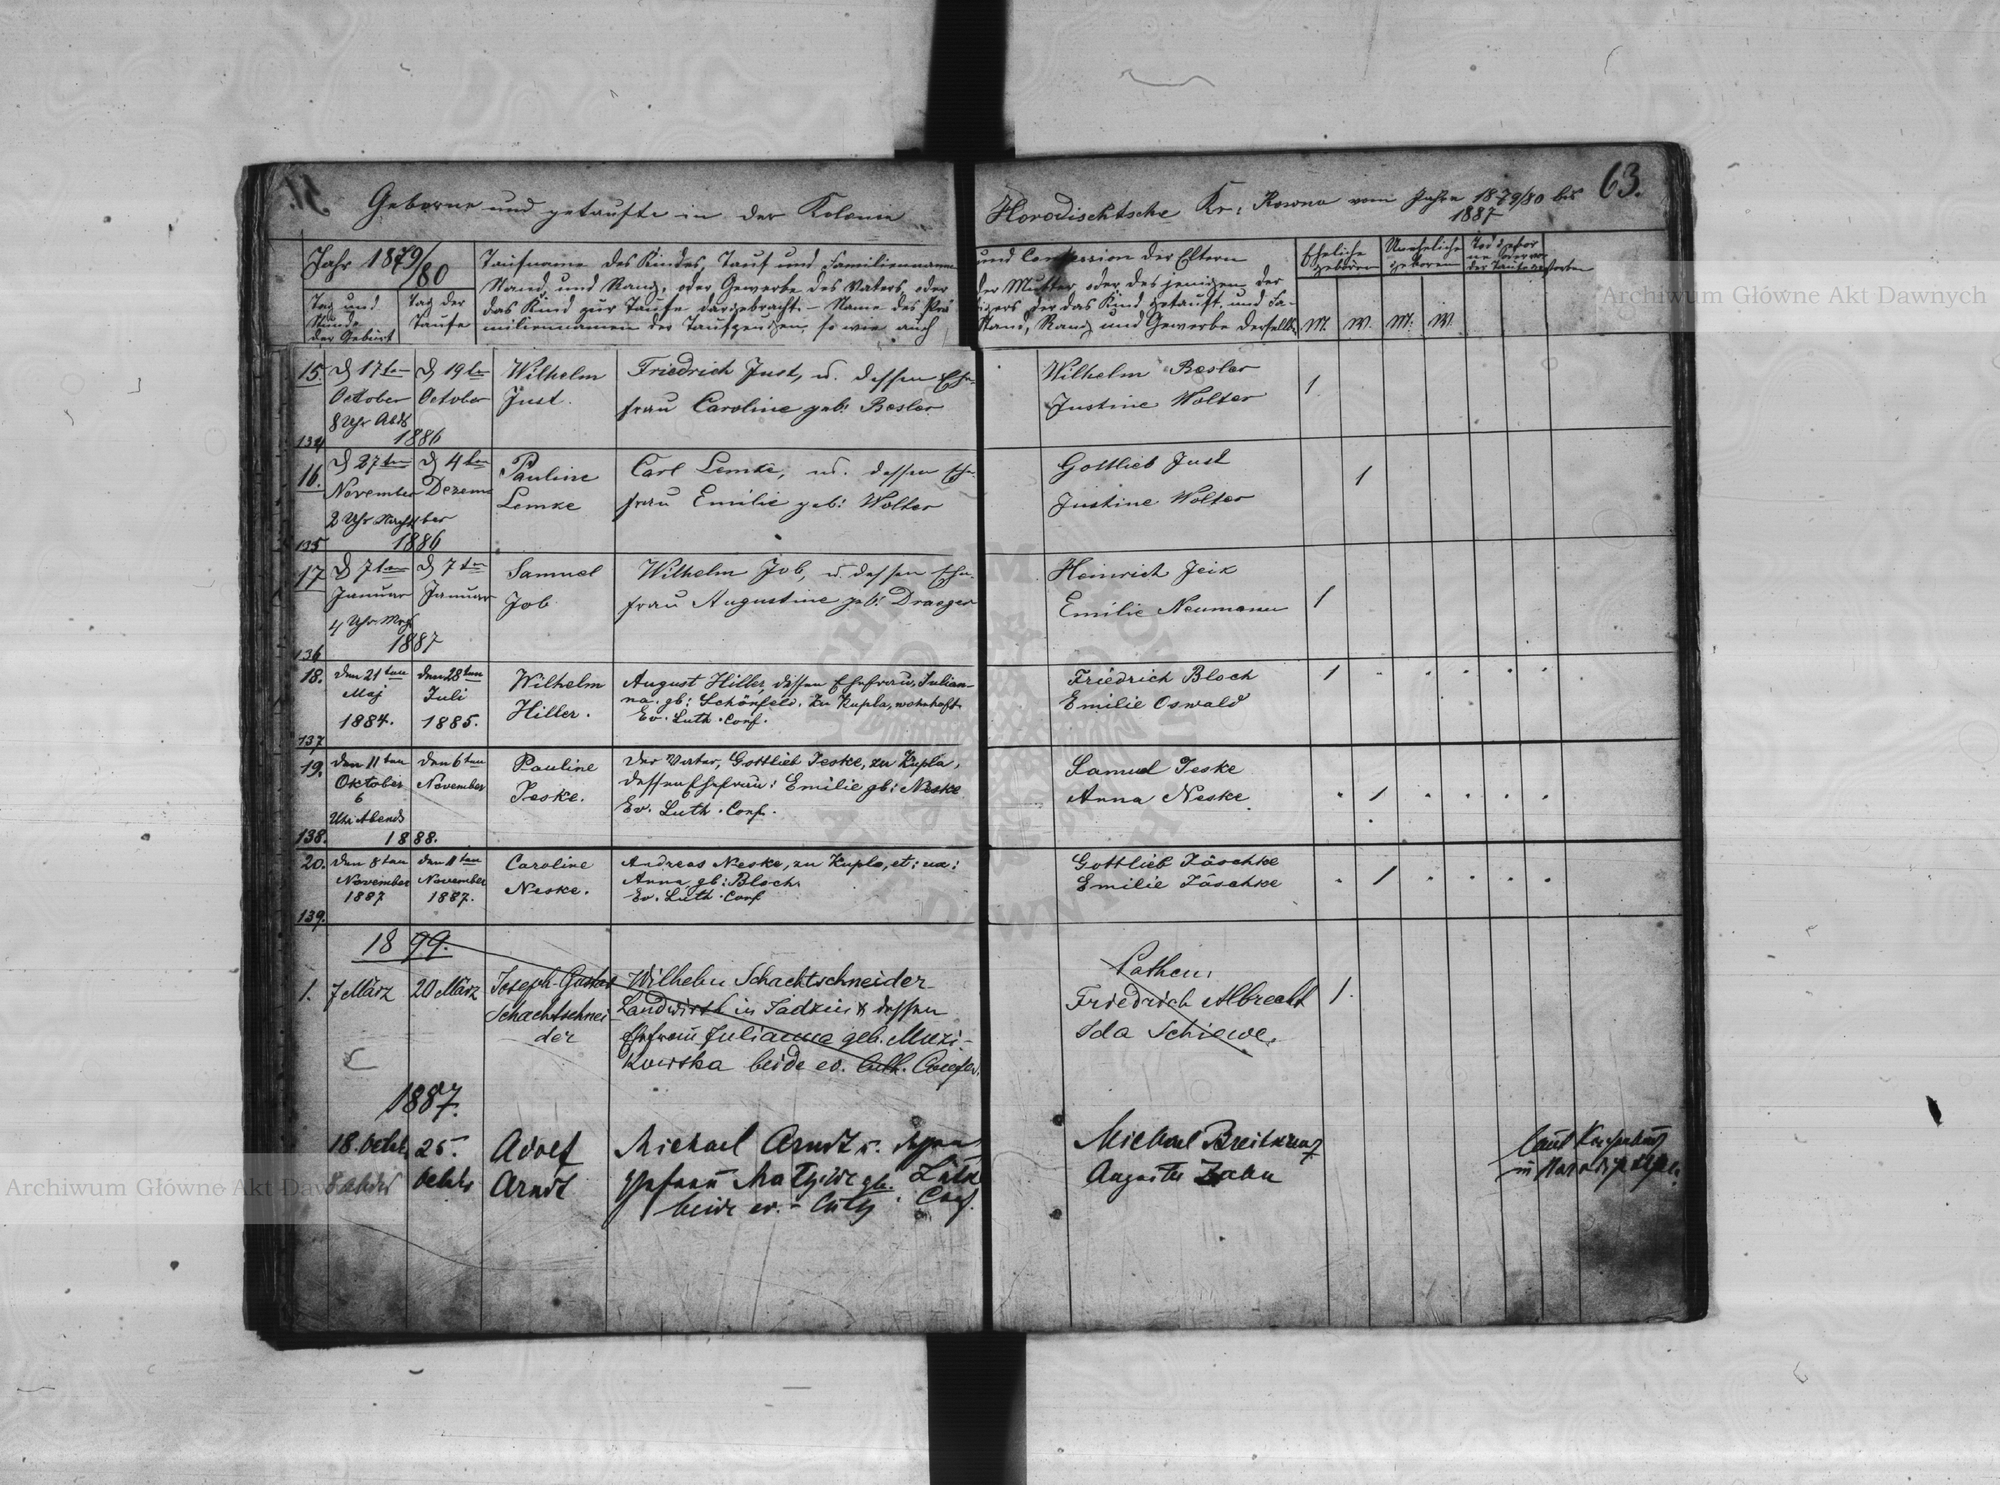 51.
63.
Geborne und getaufte in der Kolonie Horodischtsche Kr: Rowno vom Jahre 1879/80 bis
1887
Jahr 1879/80
Tag und
Stunde
der Geburt
Tag der
Taufe
Taufname des Kindes, Tauf und Familienname
Stand und Rang, oder Gewerbe des Vaters, oder
das Kind zur Taufe dargebracht. – Name des Pre
miliennamen der Taufzeugen, so wie auch
und Confession der Eltern
der Mutter oder desjenigen der
digers der das Kind getauft und Fa-
Stand, Rang und Gewerbe derselben
Eheliche
geboren
Uneheliche
geboren
M. W. M. W.
15. d 17ten d 19ten Wilhelm Friedrich Just, u. dessen Ehe- Wilhelm Besler 1
October October Just. frau Caroline geb: Besler Justine Wolter
8 Uhr Abds
134 1886
16. d 27ten d 4ten Pauline Carl Lemke, u. dessen Ehe- Gottlieb Just 1
November Dezem Lemke frau Emilie geb: Wolter Justine Wolter
2 Uhr Nachts ber
135 1886
17 d 7ten d 7ten Samuel Wilhelm Job, u. dessen Ehe- Heinrich Jeik
Januar Januar Job frau Augustine geb: Draeger Emilie Neumann 1
4 Uhr Mrg
136 1887
18. den 21ten den 28ten Wilhelm August Hiller, dessen Ehefrau, Julian- Friedrich Bloch 1
Maj Juli Hiller. na. gb: Schönfeld. zu Kupla, wohnhaft. Emilie Oswald
1884. 1885. Ev. Luth. Conf.
137
19. den 11ten den 6ten Pauline Der Vater, Gottlieb Jeske, zu Kupla, Samuel Jeske
Oktober November Jeske. dessen Ehefrau: Emilie gb: Neske Anna Neske 1
6
Uhr Abends Ev. Luth. Conf.
138. 1888.
20. den 8ten den 11ten Caroline Andreas Neske, zu Kupla, et: ux: Gottlieb Jäschke
November November Neske. Anna gb: Bloch Emilie Jäschke 1
1887 1887. Ev. Luth. Conf
139.
1899.
1. 7 März 20 März Joseph Gustav Wilhelm Schachtschneider Pathen:
Schachtschnei Landwirth in Sadkin & dessen Friedrich Albrecht 1.
der Ehefrau Julianna geb. Muzi- Ida Schiewe.
kowska beide ev. luth. Confes.
1887.
18. Octbr 25. Adolf Michael Arndt u. dessen Michael Breitkreuz
Octbr Arndt Ehefrau geb. Auguste Zahn
beide ev. - Luth Conf.
Archiwum Główne Akt Dawnych
Archiwum Główne Akt Dawnych